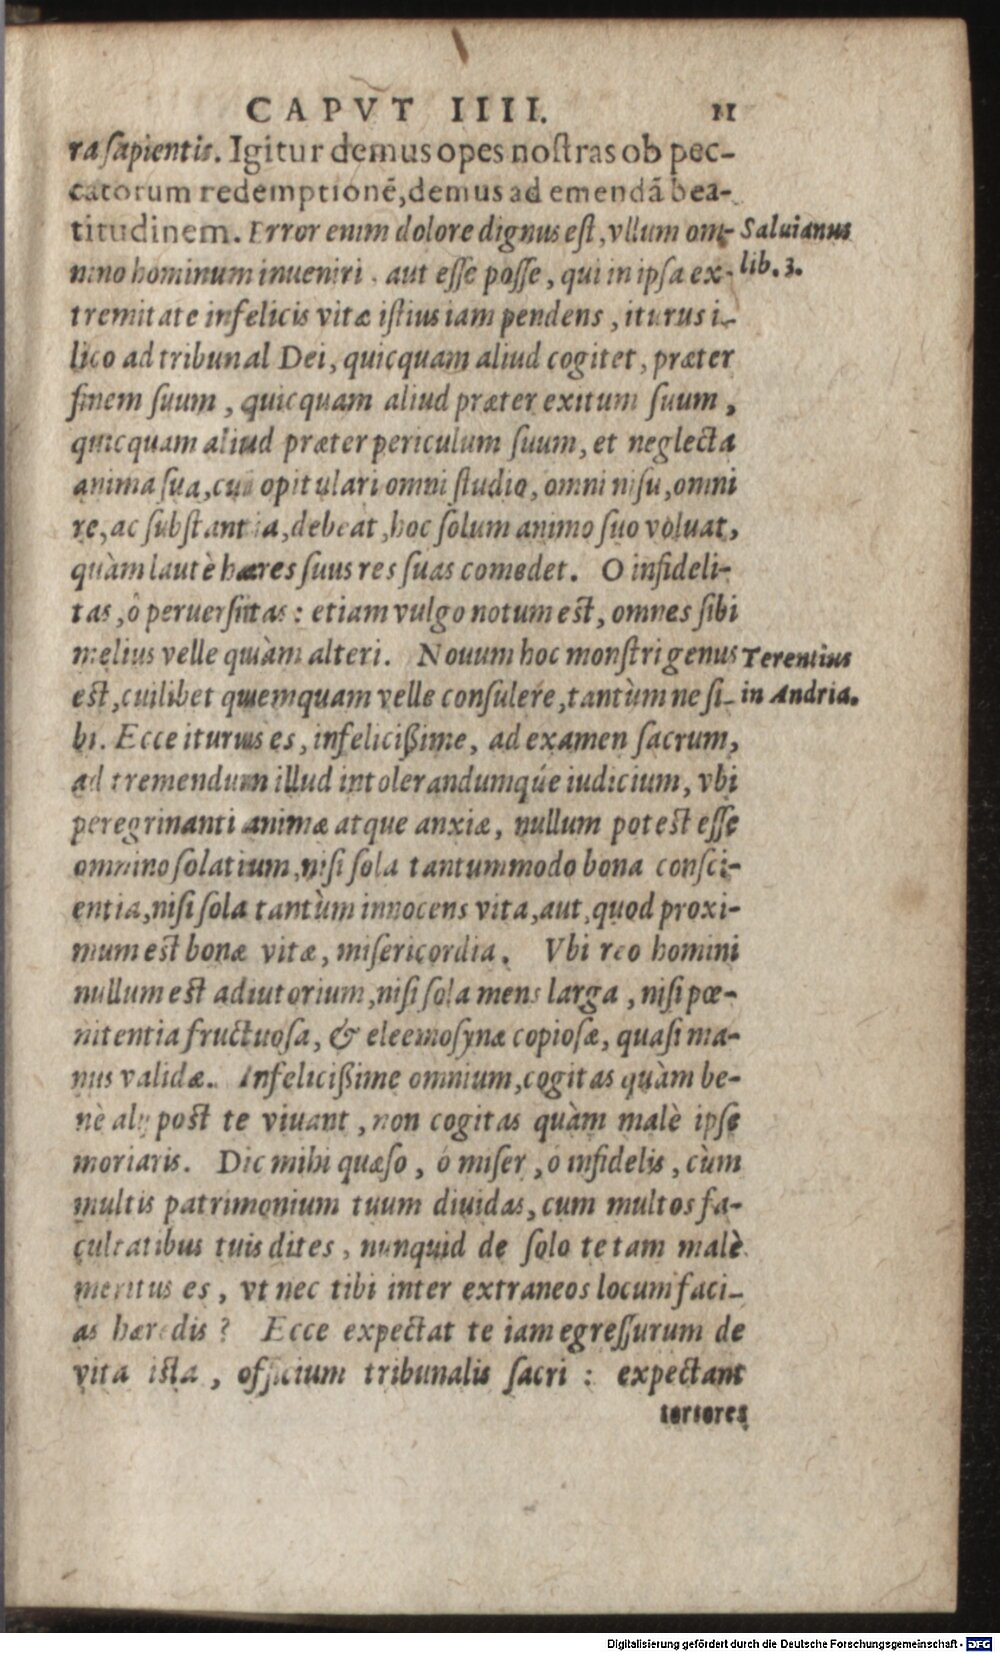 CAPVT IIII. 11
ra sapientis. Igitur demus opes nostras ob pec-
catorum redemptionē, demus ad emendā bea-
titudinem. Error enim dolore dignus est, vllum om-
nino hominum inueniri, aut esse posse, qui in ipsa ex-
tremitate infelicis vitæ istius iam pendens, iturus i-
lico ad tribunal Dei, quicquam aliud cogitet, præter
finem suum, quicquam aliud præter exitum suum,
quicquam aliud præter periculum suum, et neglecta
anima sua, cui opitulari omni studio, omni nisu, omni
re, ac substantia, debeat, hoc solum animo suo voluat,
quàm lautè hæres suus res suas comedet. O infideli-
tas, ô peruersitas: etiam vulgo notum est, omnes sibi
melius velle quàm alteri. Nouum hoc monstri genus
est, cuilibet quemquam velle consulere, tantùm ne si-
bi. Ecce iturus es, infelicißime, ad examen sacrum,
ad tremendum illud intolerandumqúe iudicium, vbi
peregrinanti animæ atque anxiæ, nullum potest esse
omnino solatium, nisi sola tantummodo bona consci-
entia, nisi sola tantùm innocens vita, aut, quod proxi-
mum est bonæ vitæ, misericordia. Vbi reo homini
nullum est adiutorium, nisi sola mens larga, nisi pœ-
nitentia fructuosa, & eleemosynæ copiosæ, quasi ma-
nus validæ. Infelicißime omnium, cogitas quàm be-
nè alij post te viuant, non cogitas quàm malè ipse
moriaris. Dic mihi quæso, ô miser, ô infidelis, cùm
multis patrimonium tuum diuidas, cum multos fa-
cultatibus tuis dites, nunquid de solo te tam malè
meritus es, vt nec tibi inter extraneos locum faci-
as hæredis? Ecce expectat te iam egressurum de
vita ista, officium tribunalis sacri: expectant
tortores
Saluianus
lib. 3.
Terentius
in Andria.
Digitalisierung gefördert durch die Deutsche Forschungsgemeinschaft - DFG